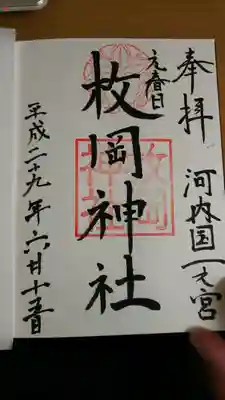 奉拝
河内国一之宮
元春日
枚岡神社
枚岡
神社
平成二十九年六月十五日